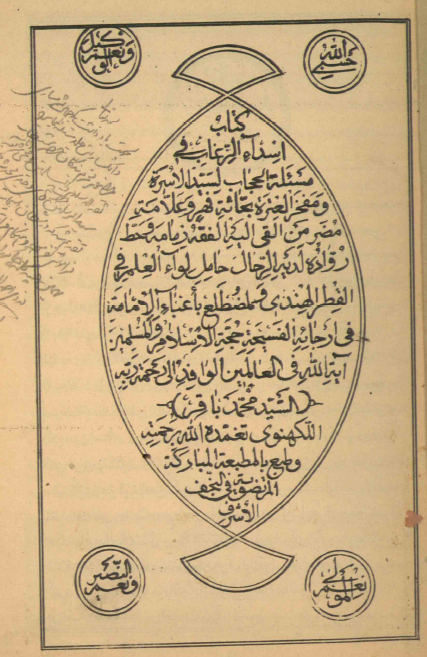 حسبي الله
ونعم الوكيل
كتاب
اسداء الرغاب في
مسئلة الحجاب لسيد الاسرة
ومفخر العترة بحاثة فهر وعلامة
مضر من القى اليه الفقه زمامه وحط
رواده لديه الرحال حامل لواء العلم في
القطر الهندي والمضطلع بأعباء الامامة
في ارجائه الفسيحة حجة الاسلام والمسلمين
آية الله في العالمين الوافد الى رحمة ربه
(السيد محمد باقر)
اللكهنوي تغمده الله برحمته
وطبع بالمطبعة المباركة
المرتضوية في النجف
الاشرف
نعم المولى
ونعم النصير